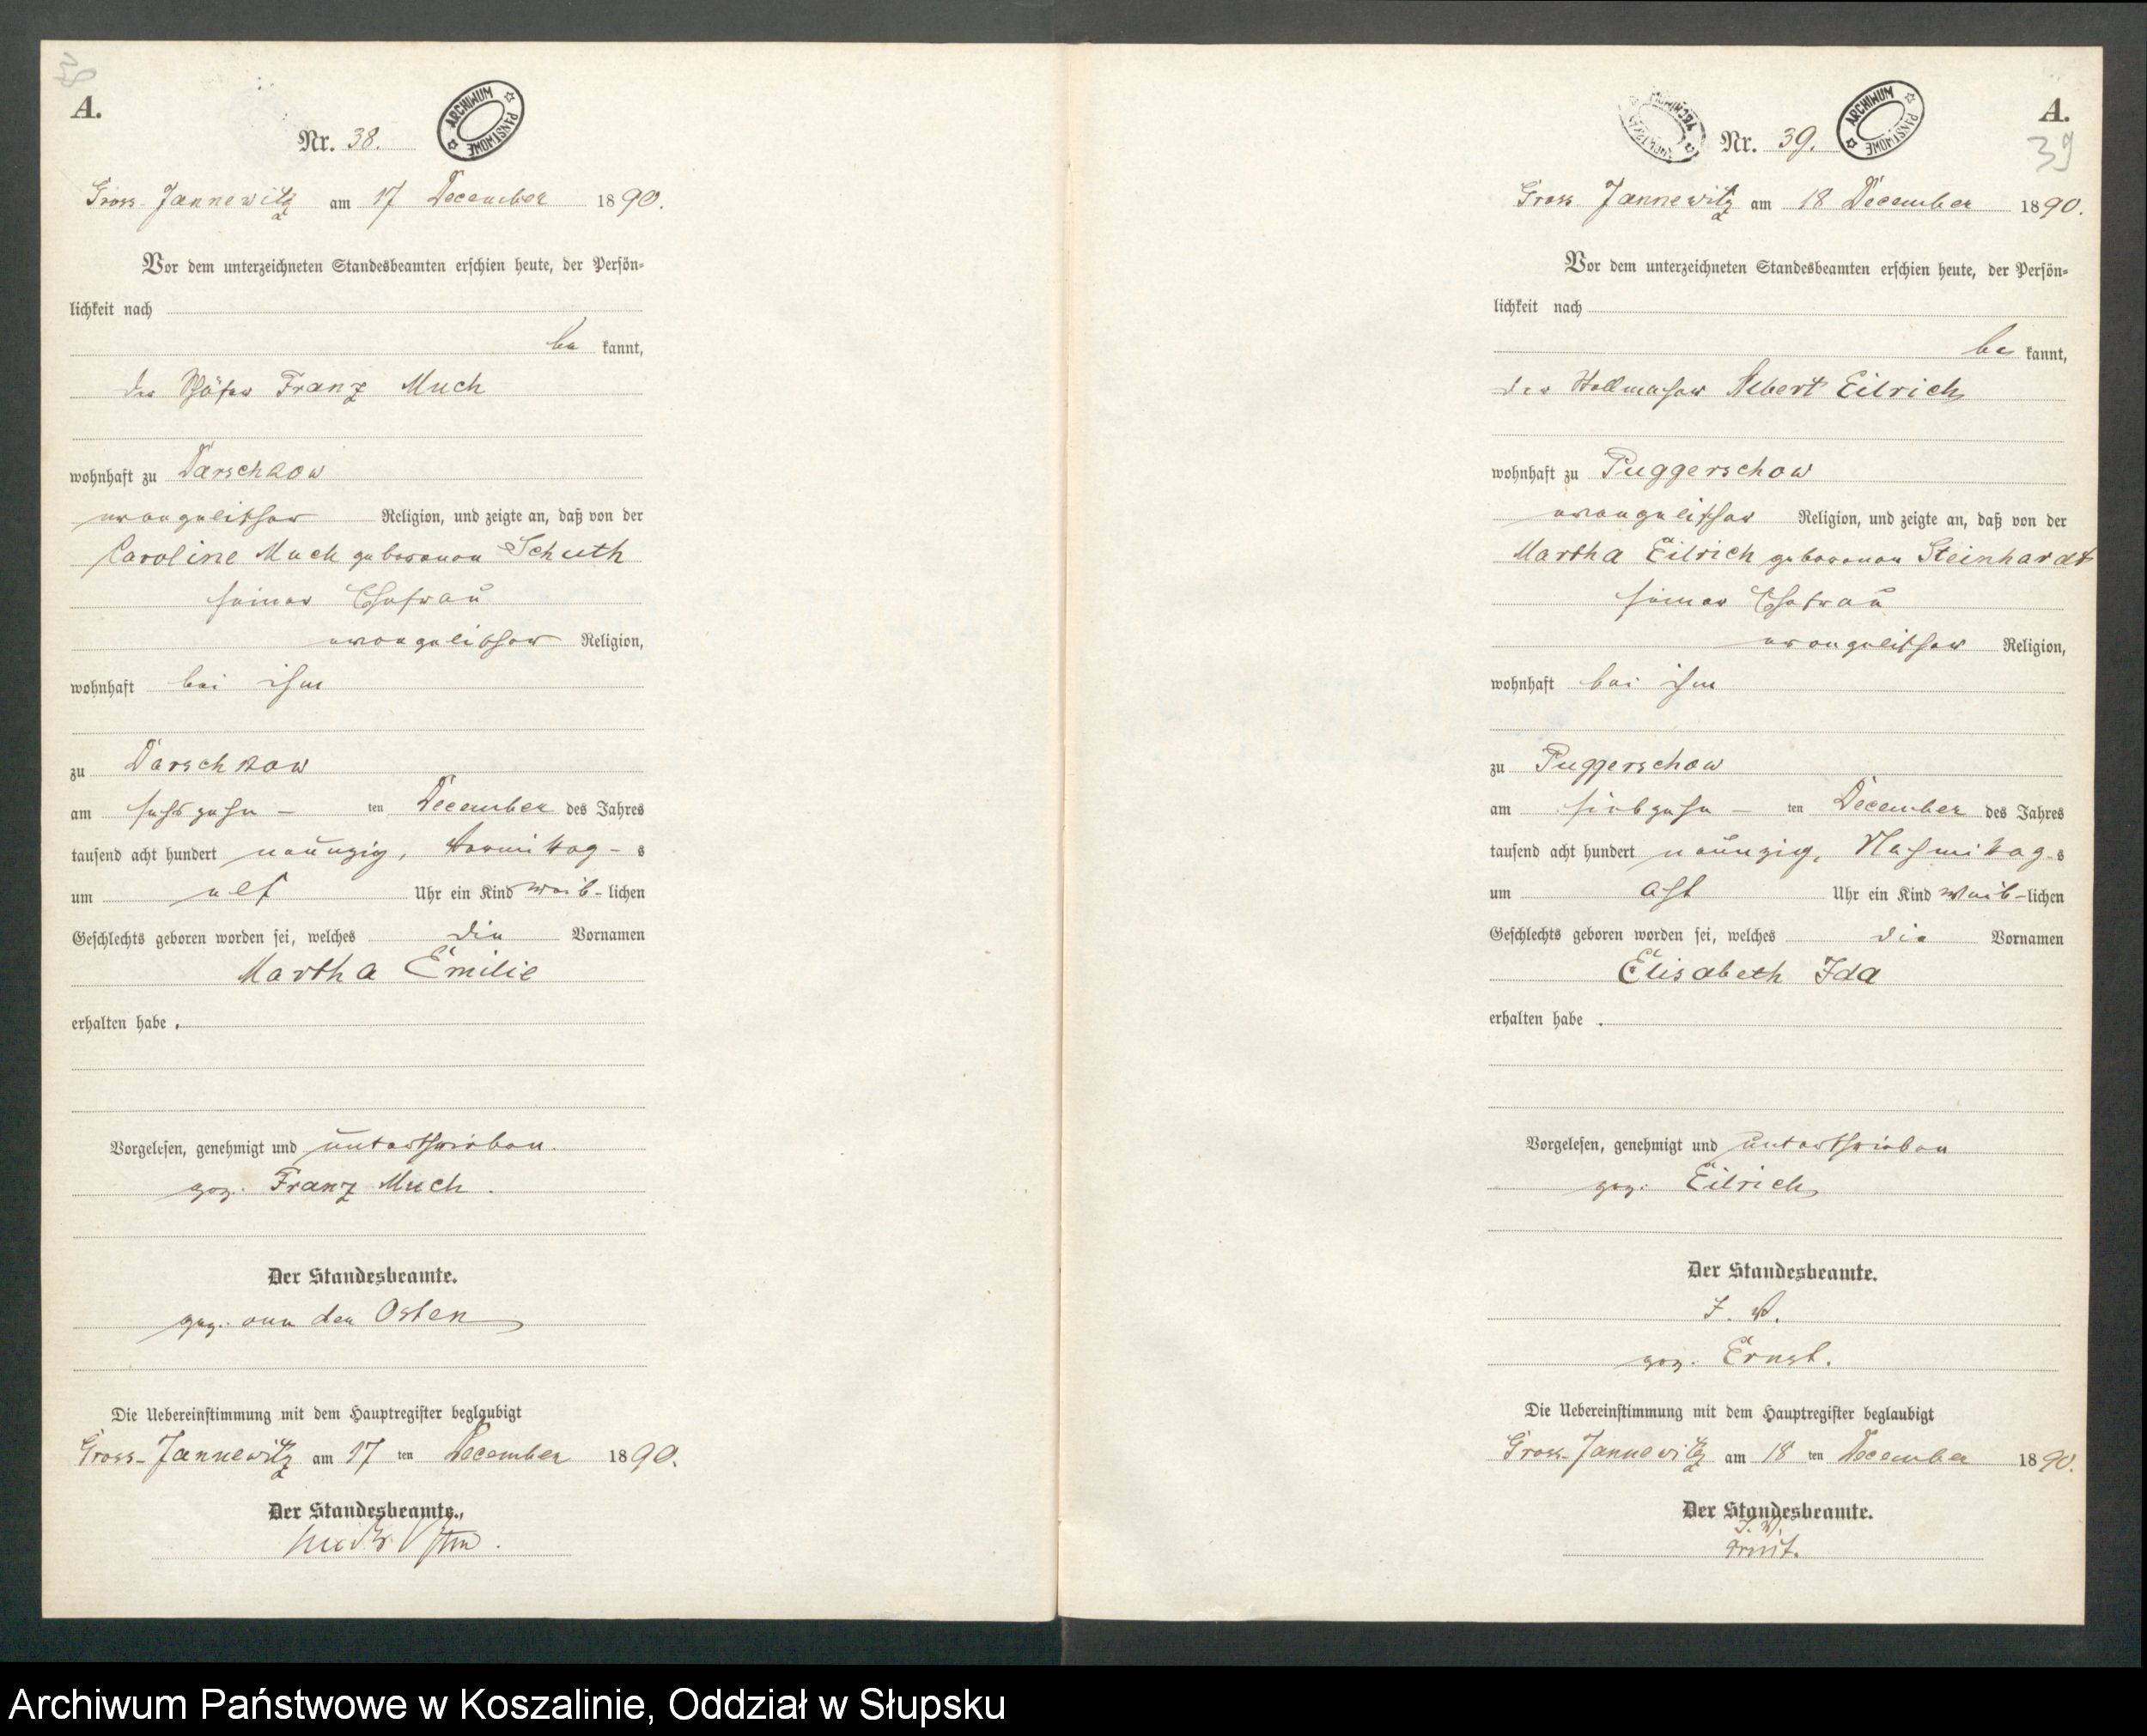 38
A.
Nr. 38.
ARCHIWUM PAŃSTWOWE
Gross-Jannewitz am 17 December 1890.
Vor dem unterzeichneten Standesbeamten erschien heute, der Persön-
lichkeit nach
be kannt,
der Schäfer Franz Much
wohnhaft zu Darschkow
evangelischer Religion, und zeigte an, daß von der
Caroline Much geborenen Schuth
seiner Ehefrau
evangelischer Religion,
wohnhaft bei ihm
zu Darschkow
am sechszehn - ten December des Jahres
tausend acht hundert neunzig, Vormittag - s
um elf Uhr ein Kind weib-lichen
Geschlechts geboren worden sei, welches die Vornamen
Martha Emilie
erhalten habe.
Vorgelesen, genehmigt und unterschrieben.
gez. Franz Much.
Der Standesbeamte.
gez. von der Osten
Die Uebereinstimmung mit dem Hauptregister beglaubigt
Gross-Jannewitz am 17 ten December 1890.
Der Standesbeamte.
A.
39
Nr. 39.
ARCHIWUM PAŃSTWOWE
Gross Jannewitz am 18 December 1890.
Vor dem unterzeichneten Standesbeamten erschien heute, der Persön-
lichkeit nach
be kannt,
der Stellmacher Albert Eilrich
wohnhaft zu Puggerschow
evangelischer Religion, und zeigte an, daß von der
Martha Eilrich geborenen Steinhardt
seiner Ehefrau
evangelischer Religion,
wohnhaft bei ihm
zu Puggerschow
am siebzehn - ten December des Jahres
tausend acht hundert neunzig, Nachmittag - s
um acht Uhr ein Kind weib-lichen
Geschlechts geboren worden sei, welches die Vornamen
Elisabeth Ida
erhalten habe.
Vorgelesen, genehmigt und unterschrieben
gez. Eilrich
Der Standesbeamte.
I. V.
gez. Ernst.
Die Uebereinstimmung mit dem Hauptregister beglaubigt
Gross-Jannewitz am 18 ten December 1890.
Der Standesbeamte.
I. V.
Ernst.
Archiwum Państwowe w Koszalinie, Oddział w Słupsku